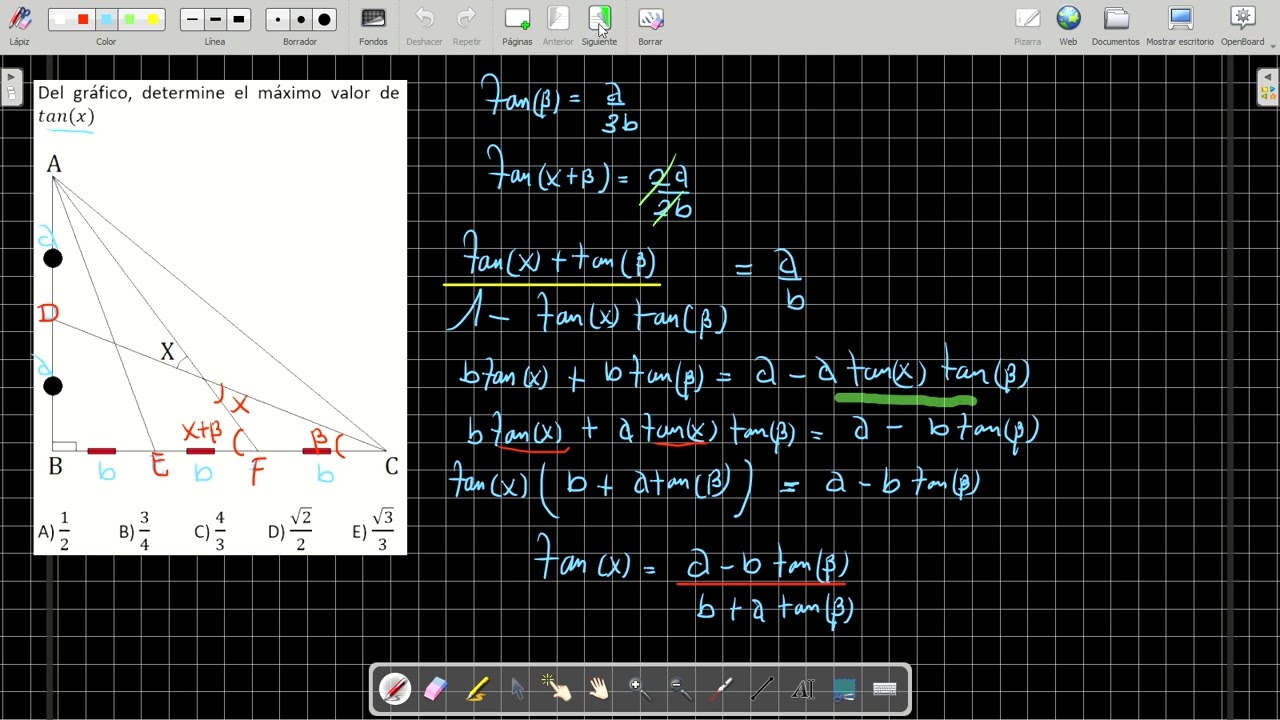 Lápiz
Color
Línea
Borrador
Fondos
Deshacer
Repetir
Páginas
Anterior
Siguiente
Borrar
Pizarra
Web
Documentos
Mostrar escritorio
OpenBoard
Del gráfico, determine el máximo valor de
tan(x)
A
a
D
X
x
a
x+β
β
B
E
F
C
b
b
b
A) 1/2
B) 3/4
C) 4/3
D) √2/2
E) √3/3
tan(β) = a/3b
tan(x+β) = 2a/2b
tan(x) + tan(β) = a
1 - tan(x) tan(β) b
b tan(x) + b tan(β) = a - a tan(x) tan(β)
b tan(x) + a tan(x) tan(β) = a - b tan(β)
tan(x) (b + a tan(β)) = a - b tan(β)
tan(x) = a - b tan(β)
b + a tan(β)
AI